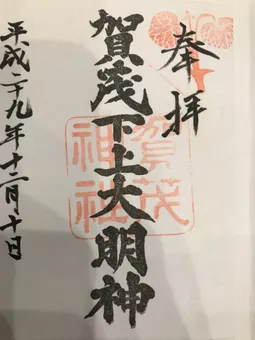 奉拝
賀茂下上大明神
賀茂神社
平成二十九年十二月十日